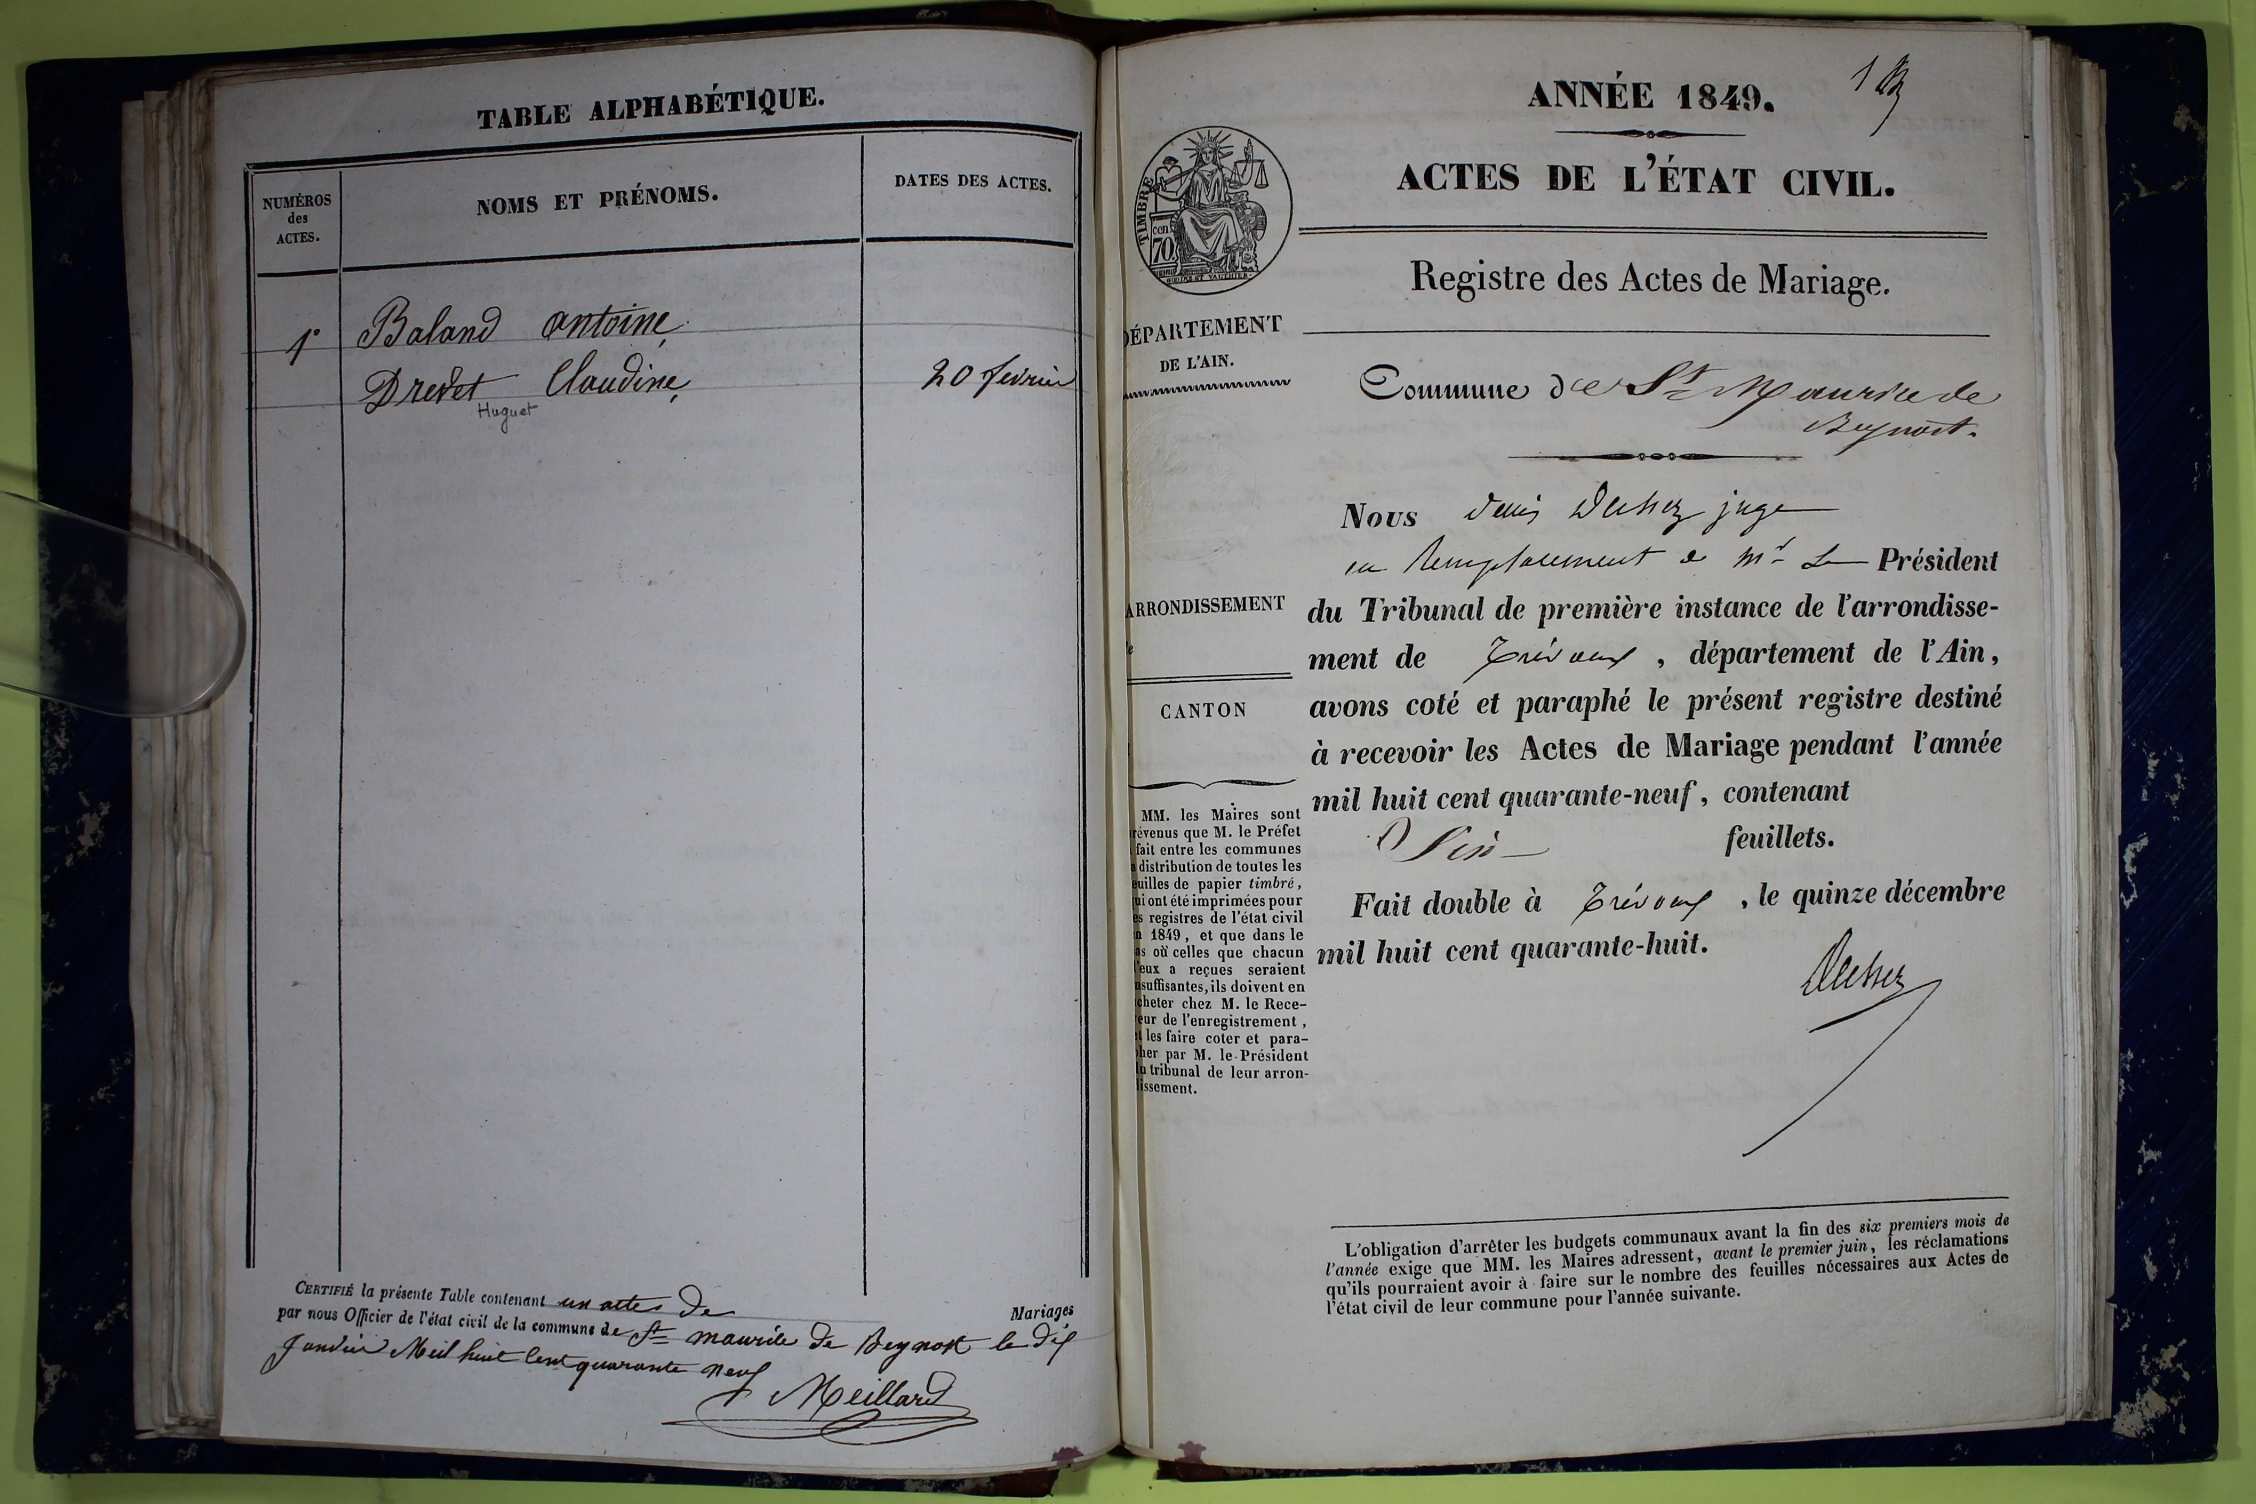 TABLE ALPHABÉTIQUE.
NUMÉROS
des
ACTES.
NOMS ET PRÉNOMS.
DATES DES ACTES.
1° Baland antoine,
Drevet Claudine, 20 fevrier
Huguet
CERTIFIÉ la présente Table contenant un actes de Mariages
par nous Officier de l'état civil de la commune de St maurice de Beynost le dix
Janvier Mil huit Cent quarante neuf
Meillard
1
ANNÉE 1849.
ACTES DE L'ÉTAT CIVIL.
TIMBRE
cen
70
Registre des Actes de Mariage.
DÉPARTEMENT
DE L'AIN.
Commune de St Maurice de
Beynost.
Nous juge
en Remplacement de Mr Le Président
ARRONDISSEMENT
du Tribunal de première instance de l'arrondisse-
ment de Trévoux, département de l'Ain,
CANTON
avons coté et paraphé le présent registre destiné
à recevoir les Actes de Mariage pendant l'année
mil huit cent quarante-neuf, contenant
Six feuillets.
Fait double à Trévoux, le quinze décembre
mil huit cent quarante-huit.
MM. les Maires sont
révenus que M. le Préfet
fait entre les communes
a distribution de toutes les
euilles de papier timbré,
ui ont été imprimées pour
es registres de l'état civil
n 1849, et que dans le
as où celles que chacun
'eux a reçues seraient
nsuffisantes, ils doivent en
cheter chez M. le Rece-
eur de l'enregistrement,
t les faire coter et para-
pher par M. le Président
u tribunal de leur arron-
issement.
L'obligation d'arrêter les budgets communaux avant la fin des six premiers mois de
l'année exige que MM. les Maires adressent, avant le premier juin, les réclamations
qu'ils pourraient avoir à faire sur le nombre des feuilles nécessaires aux Actes de
l'état civil de leur commune pour l'année suivante.